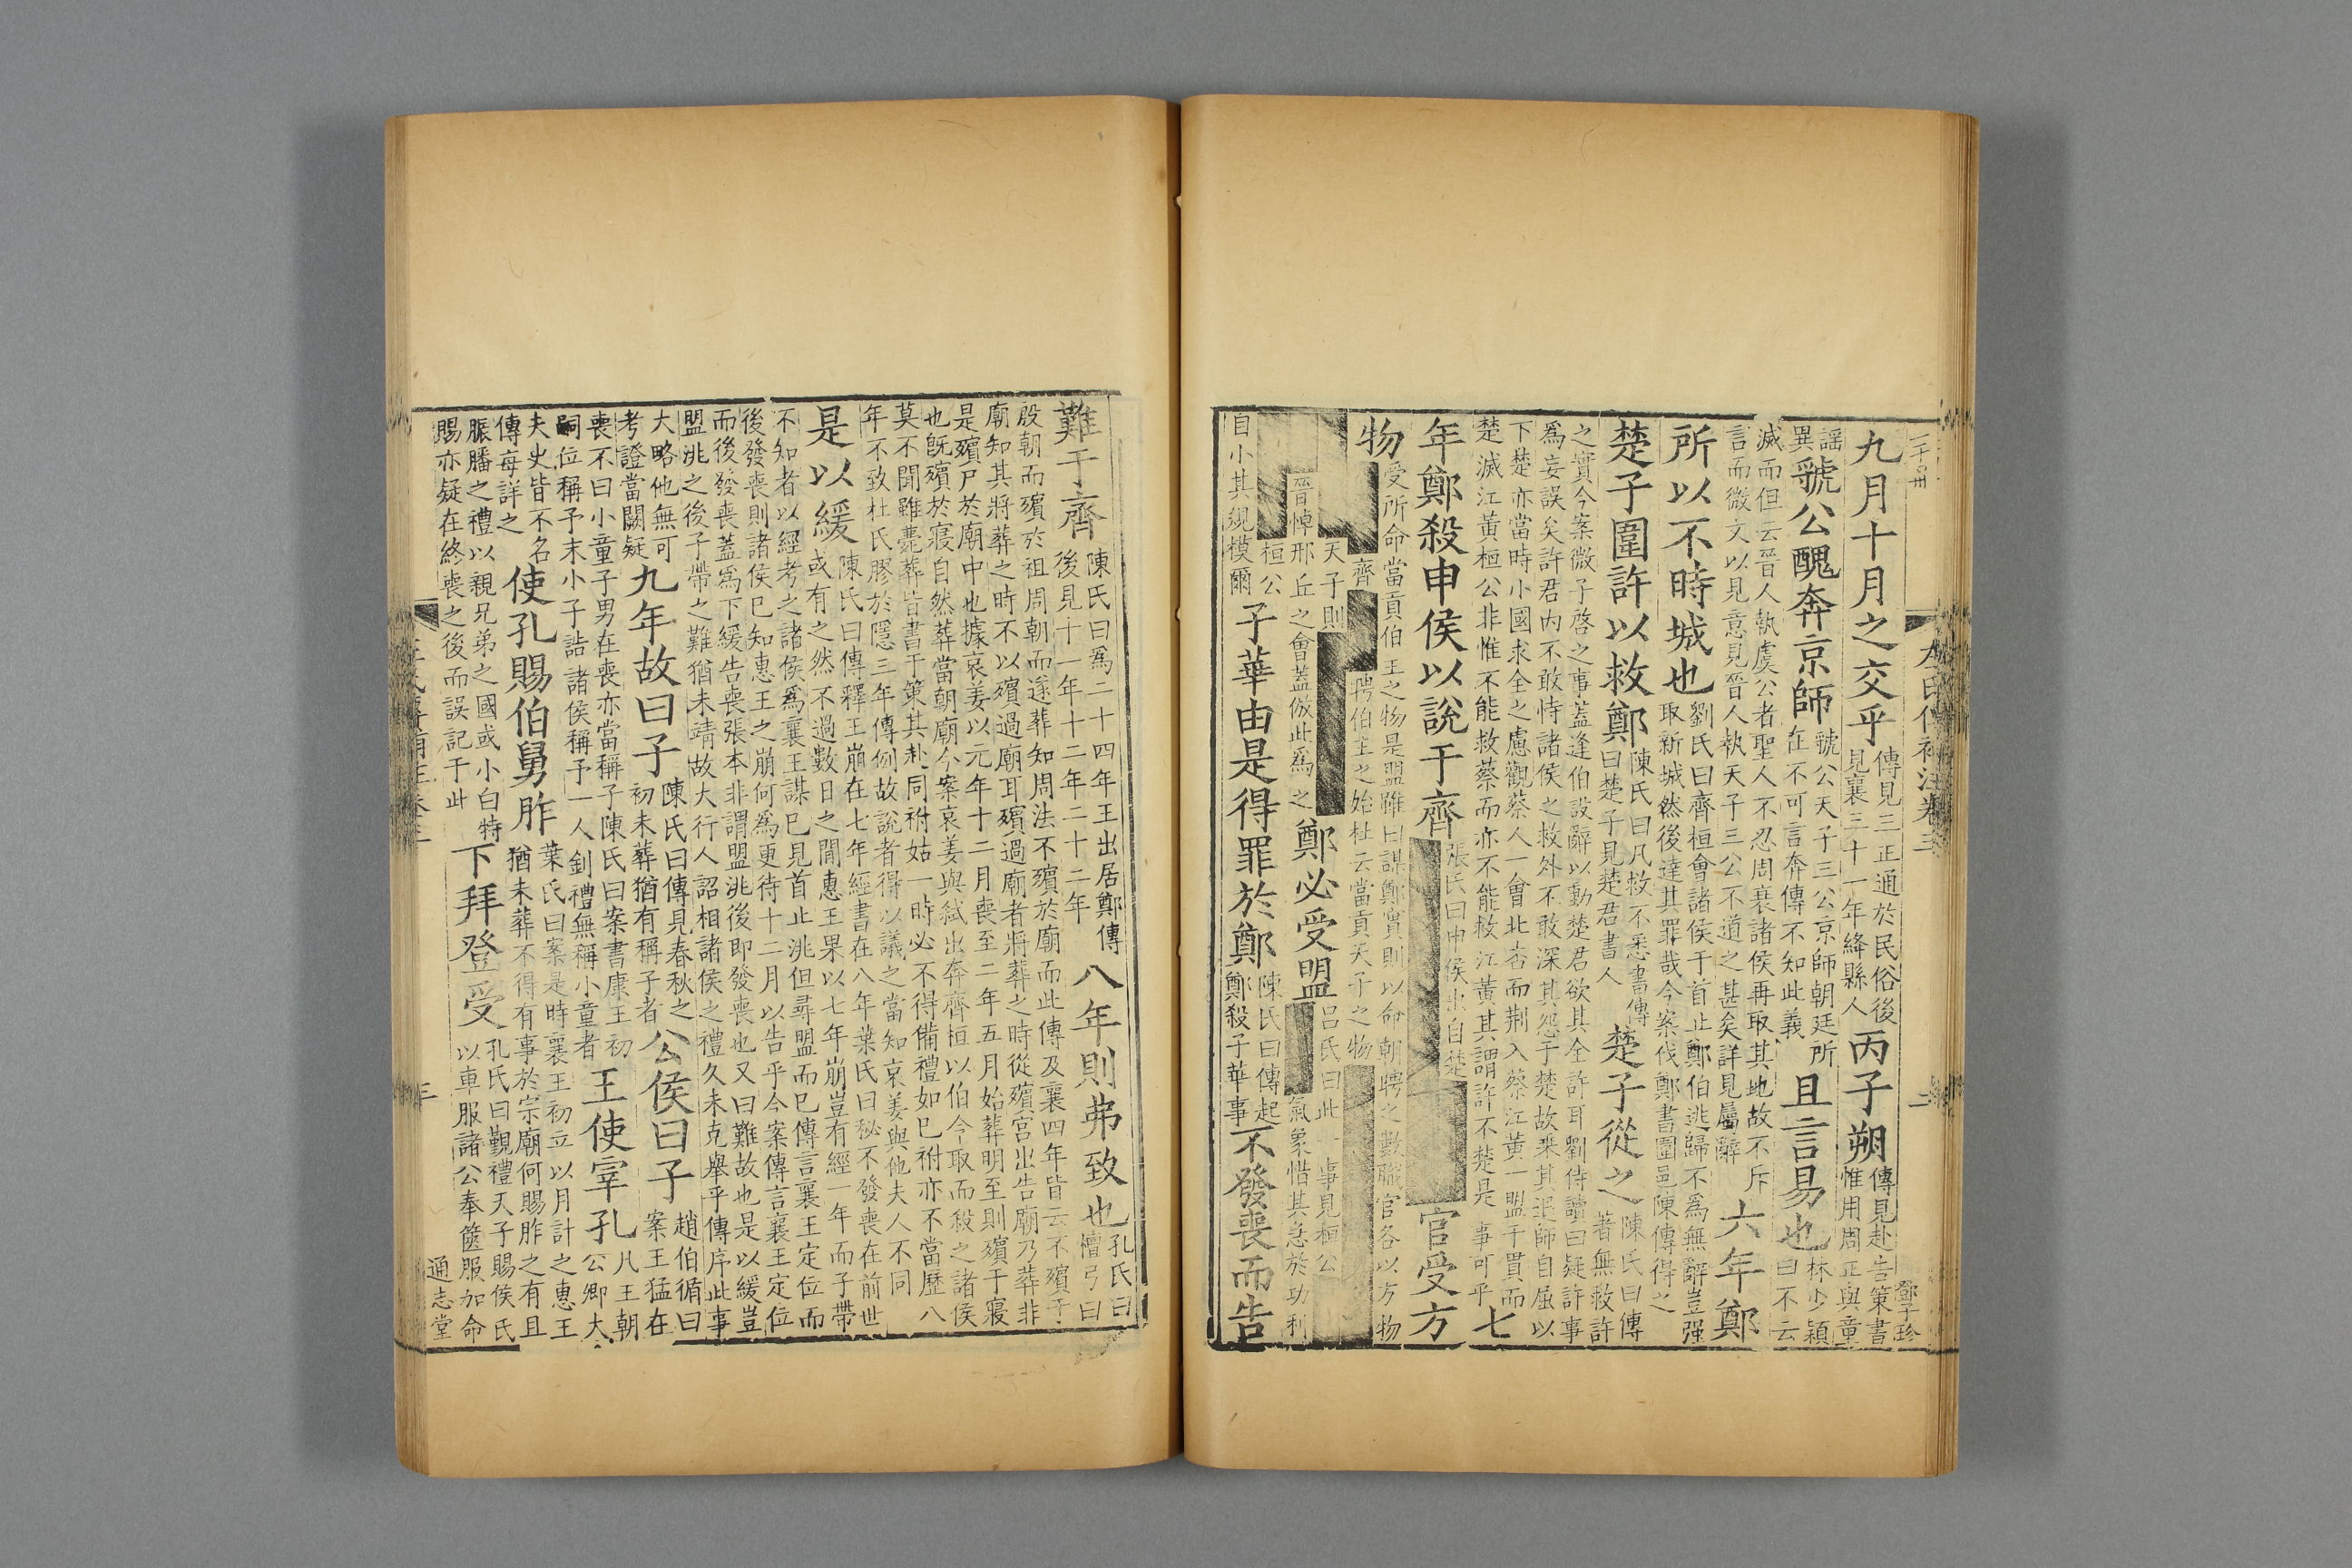 左氏傳補注卷三
鄧子珍
九月十月之交乎傳見三正通於民俗後見襄三十一年絳縣人丙子朔傳見赴告策書惟用周正與童
謡異虢公醜奔京師虢公天子三公京師朝廷所在不可言奔傳不知此義且言易也林少穎曰不云
滅而但云晉人執虞公者聖人不忍周衰諸侯再取其地故不斥言而微文以見意見晉人執天子三公不道之甚矣詳見屬辭六年鄭
所以不時城也劉氏曰齊桓會諸侯于首止鄭伯逃歸不為無辭豈强取新城然後達其罪哉今案伐鄭書圍邑陳傳得之
楚子圍許以救鄭陳氏曰凡救不悉書傳曰楚子見楚君書人楚子從之陳氏曰傳著無救許
之實今案微子啓之事蓋逢伯設辭以動楚君欲其全許耳劉侍讀曰疑許事為妄誤矣許君内不敢恃諸侯之救外不敢深其怨于楚故釆其退師自屈以
下楚亦當時小國求全之慮觀蔡人一會北杏而荆入蔡江黃一盟于貫而楚滅江黃桓公非惟不能救蔡而亦不能救江黃其謂許不楚是事可乎七
年鄭殺申侯以說于齊張氏曰申侯出自楚官受方
物受所命當貢伯王之物是盟雖曰謀鄭實則以命朝聘之數職官各以方物齊聘伯主之始杜云當貢天子之物
天子則晉悼邢丘之會蓋倣此為之鄭必受盟呂氏曰此一事見桓公氣象惜其急於功利
桓公自小其規模爾子華由是得罪於鄭陳氏曰傳起鄭殺子華事不發喪而告
難于齊陳氏曰為二十四年王出居鄭傳後見十一年十二年二十二年八年則弗致也孔氏曰檀弓曰
殷朝而殯於祖周朝而遂葬知周法不殯於廟而此傳及襄四年皆云不殯于廟知其將葬之時不以殯過廟耳殯過廟者將葬之時從殯宮出告廟乃葬非
是殯尸於廟中也據哀姜以元年十二月喪至二年五月始葬明至則殯于寢也既殯於寢自然葬當朝廟今案哀姜與弑出奔齊桓以伯令取而殺之諸侯
莫不聞雖薨葬皆書于策其赴同祔姑一時必不得備禮如已祔亦不當歷八年不致杜氏膠於隱三年傳例故說者得以議之當知哀姜與他夫人不同
是以緩陳氏曰傳釋王崩在七年經書在八年葉氏曰秘不發喪在前世或有之然不過數日之間惠王果以七年崩豈有經一年而子帶
不知者以經考之諸侯為襄王謀已見首止洮但尋盟而已傳言襄王定位而後發喪則諸侯已知惠王之崩何為更待十二月以告乎今案傳言襄王定位
而後發喪蓋為下緩告喪張本非謂盟洮後即發喪也又曰難故也是以緩豈盟洮之後子帶之難猶未靖故大行人詔相諸侯之禮久未克舉乎傳序此事
大略他無可考證當闕疑九年故曰子陳氏曰傳見春秋之初未葬猶有稱子者公侯曰子趙伯循曰案王猛在
喪不曰小童子男在喪亦當稱子陳氏曰案書康王初嗣位稱予末小子誥諸侯稱予一人劉禮無稱小童者王使宰孔凡王朝公卿大
夫史皆不名傳每詳之使孔賜伯舅胙葉氏曰案是時襄王初立以月計之惠王猶未葬不得有事於宗廟何賜胙之有且
脤膰之禮以親兄弟之國或小白特賜亦疑在終喪之後而誤記于此下拜登受孔氏曰覲禮天子賜侯氏以車服諸公奉篋服加命
通志堂